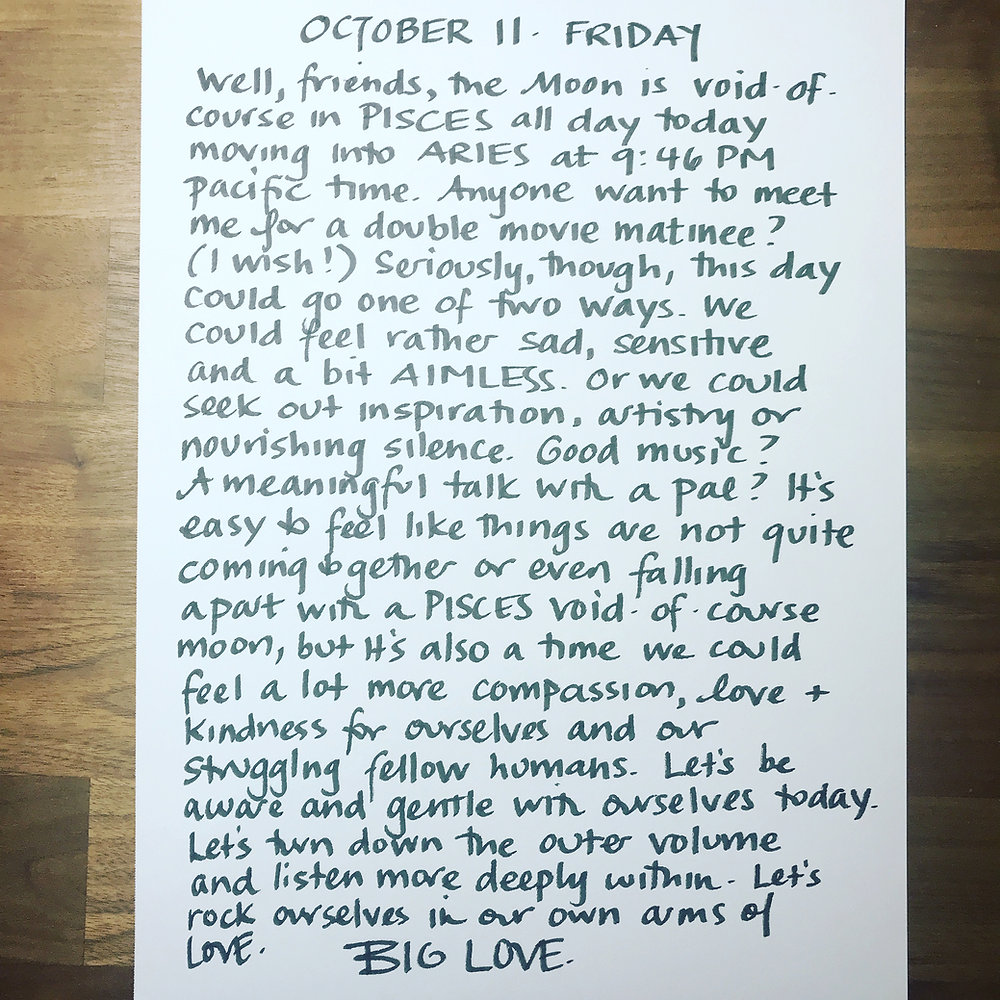 OCTOBER 11. FRIDAY
Well, friends, the Moon is void-of-
course in PISCES all day today
moving into ARIES at 9:46 PM
pacific time. Anyone want to meet
me for a double movie matinee?
(I wish!) Seriously, though, this day
could go one of two ways. We
could feel rather sad, sensitive
and a bit AIMLESS. Or we could
seek out inspiration, artistry or
nourishing silence. Good music?
A meaningful talk with a pal? It's
easy to feel like things are not quite
coming together or even falling
apart with a PISCES void-of-course
moon, but it's also a time we could
feel a lot more compassion, love +
kindness for ourselves and our
struggling fellow humans. Let's be
aware and gentle with ourselves today.
Let's turn down the outer volume
and listen more deeply within. Let's
rock ourselves in our own arms of
LOVE. BIG LOVE.